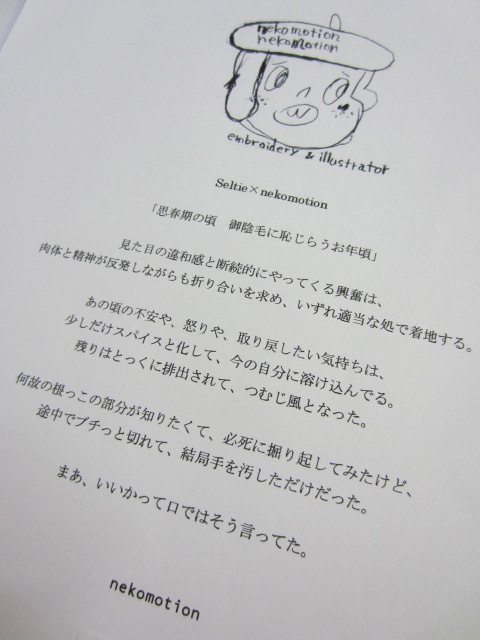 nekomotion
nekomotion
embroidery & illustrator
Seltie×nekomotion
「思春期の頃　御陰毛に恥じらうお年頃」
見た目の違和感と断続的にやってくる興奮は、
肉体と精神が反発しながらも折り合いを求め、いずれ適当な処で着地する。
あの頃の不安や、怒りや、取り戻したい気持ちは、
少しだけスパイスと化して、今の自分に溶け込んでる。
残りはとっくに排出されて、つむじ風となった。
何故の根っこの部分が知りたくて、必死に掘り起してみたけど、
途中でブチっと切れて、結局手を汚しただけだった。
まあ、いいかって口ではそう言ってた。
nekomotion